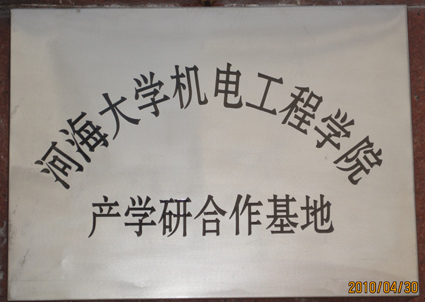 河海大学机电工程学院
产学研合作基地
2010/04/30